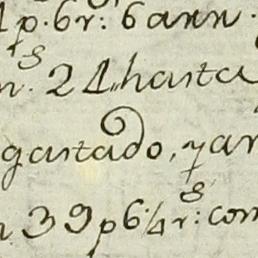 p. 6 r: 6 ann
s. 24, hasta
gastado, y an
39 p 6 1/4 rs: com